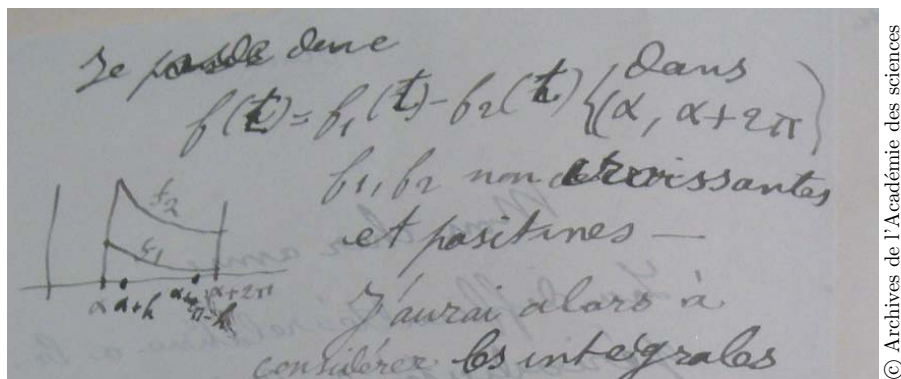 Je pose donc
f(t) = f₁(t) - f₂(t) { dans (α, α+2π)
f₁, f₂ non croissantes
et positives —
f₂
f₁
α α+h α+2π-h α+2π
J'aurai alors à
considérer les intégrales
© Archives de l'Académie des sciences